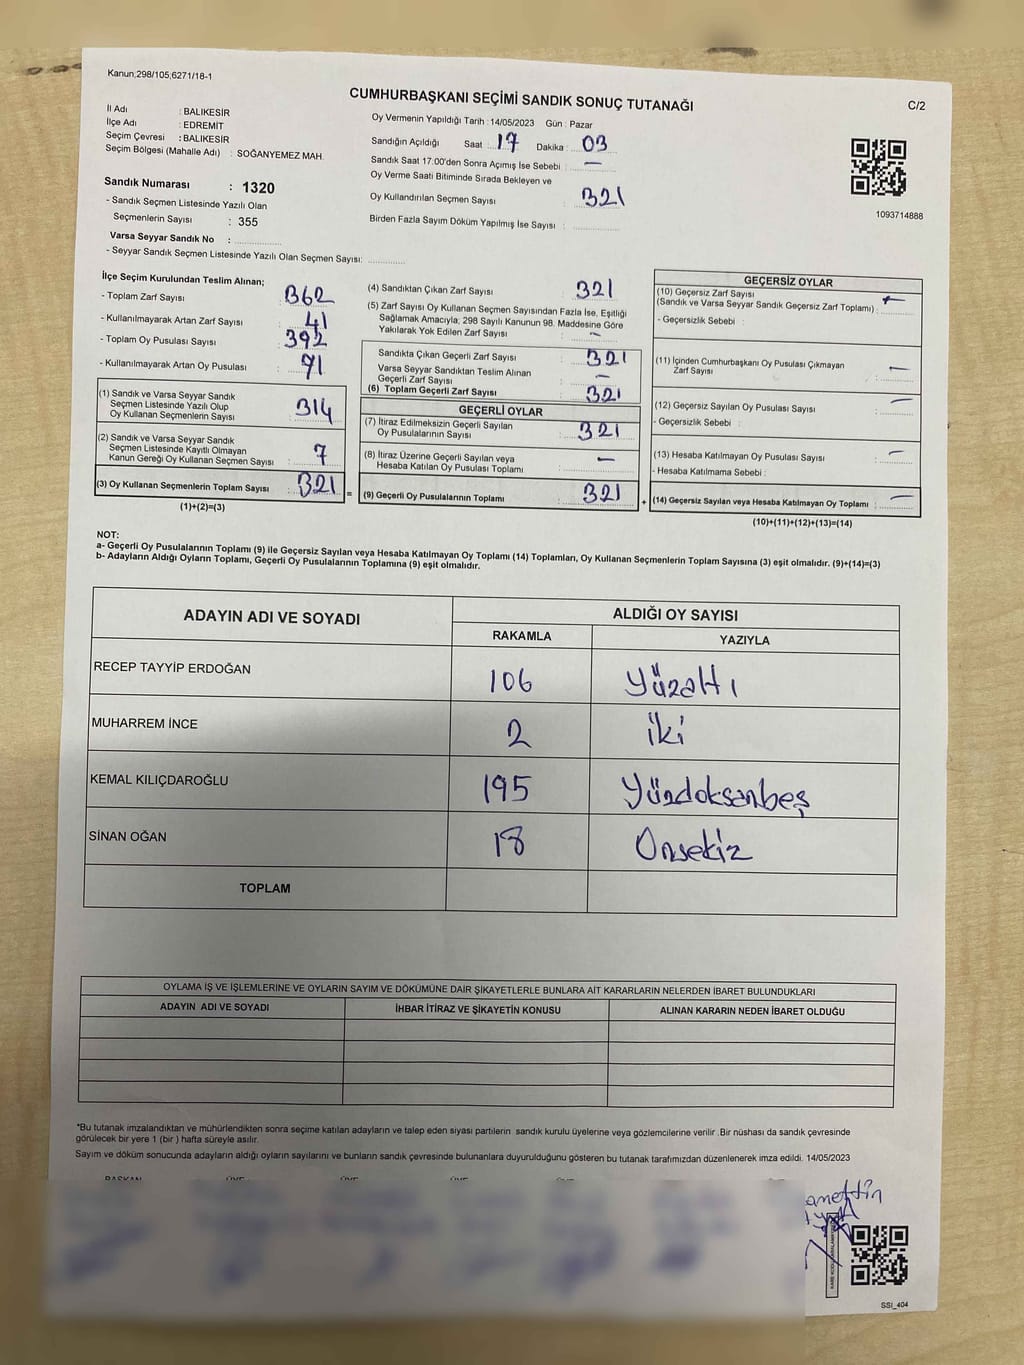 Kanun;298/105;6271/18-1
CUMHURBAŞKANI SEÇİMİ SANDIK SONUÇ TUTANAĞI
C/2
İl Adı : BALIKESİR
İlçe Adı : EDREMİT
Seçim Çevresi : BALIKESİR
Seçim Bölgesi (Mahalle Adı) : SOĞANYEMEZ MAH.
Sandık Numarası : 1320
- Sandık Seçmen Listesinde Yazılı Olan
Seçmenlerin Sayısı : 355
Varsa Seyyar Sandık No :
- Seyyar Sandık Seçmen Listesinde Yazılı Olan Seçmen Sayısı:
Oy Vermenin Yapıldığı Tarih : 14/05/2023 Gün : Pazar
Sandığın Açıldığı Saat : 17 Dakika : 03
Sandık Saat 17:00'den Sonra Açımış İse Sebebi : —
Oy Verme Saati Bitiminde Sırada Bekleyen ve
Oy Kullandırılan Seçmen Sayısı : 321
Birden Fazla Sayım Döküm Yapılmış İse Sayısı :
1093714888
İlçe Seçim Kurulundan Teslim Alınan;
- Toplam Zarf Sayısı : 362
- Kullanılmayarak Artan Zarf Sayısı : 41
- Toplam Oy Pusulası Sayısı : 392
- Kullanılmayarak Artan Oy Pusulası : 71
(1) Sandık ve Varsa Seyyar Sandık
Seçmen Listesinde Yazılı Olup
Oy Kullanan Seçmenlerin Sayısı : 314
(2) Sandık ve Varsa Seyyar Sandık
Seçmen Listesinde Kayıtlı Olmayan
Kanun Gereği Oy Kullanan Seçmen Sayısı : 7
(3) Oy Kullanan Seçmenlerin Toplam Sayısı : 321 =
(1)+(2)=(3)
(4) Sandıktan Çıkan Zarf Sayısı : 321
(5) Zarf Sayısı Oy Kullanan Seçmen Sayısından Fazla İse, Eşitliği
Sağlamak Amacıyla; 298 Sayılı Kanunun 98. Maddesine Göre
Yakılarak Yok Edilen Zarf Sayısı : —
Sandıkta Çıkan Geçerli Zarf Sayısı : 321
Varsa Seyyar Sandıktan Teslim Alınan
Geçerli Zarf Sayısı : —
(6) Toplam Geçerli Zarf Sayısı : 321
GEÇERLİ OYLAR
(7) İtiraz Edilmeksizin Geçerli Sayılan
Oy Pusulalarının Sayısı : 321
(8) İtiraz Üzerine Geçerli Sayılan veya
Hesaba Katılan Oy Pusulası Toplamı : —
(9) Geçerli Oy Pusulalarının Toplamı : 321 +
GEÇERSİZ OYLAR
(10) Geçersiz Zarf Sayısı
(Sandık ve Varsa Seyyar Sandık Geçersiz Zarf Toplamı) : —
- Geçersizlik Sebebi :
(11) İçinden Cumhurbaşkanı Oy Pusulası Çıkmayan
Zarf Sayısı : —
(12) Geçersiz Sayılan Oy Pusulası Sayısı : —
- Geçersizlik Sebebi :
(13) Hesaba Katılmayan Oy Pusulası Sayısı : —
- Hesaba Katılmama Sebebi :
(14) Geçersiz Sayılan veya Hesaba Katılmayan Oy Toplamı : —
(10)+(11)+(12)+(13)=(14)
NOT:
a- Geçerli Oy Pusulalarının Toplamı (9) ile Geçersiz Sayılan veya Hesaba Katılmayan Oy Toplamı (14) Toplamları, Oy Kullanan Seçmenlerin Toplam Sayısına (3) eşit olmalıdır. (9)+(14)=(3)
b- Adayların Aldığı Oyların Toplamı, Geçerli Oy Pusulalarının Toplamına (9) eşit olmalıdır.
ADAYIN ADI VE SOYADI
ALDIĞI OY SAYISI
RAKAMLA YAZIYLA
RECEP TAYYİP ERDOĞAN 106 Yüzaltı
MUHARREM İNCE 2 iki
KEMAL KILIÇDAROĞLU 195 Yüzdoksanbeş
SİNAN OĞAN 18 Onsekiz
TOPLAM
OYLAMA İŞ VE İŞLEMLERİNE VE OYLARIN SAYIM VE DÖKÜMÜNE DAİR ŞİKAYETLERLE BUNLARA AİT KARARLARIN NELERDEN İBARET BULUNDUKLARI
ADAYIN ADI VE SOYADI İHBAR İTİRAZ VE ŞİKAYETİN KONUSU ALINAN KARARIN NEDEN İBARET OLDUĞU
*Bu tutanak imzalandıktan ve mühürlendikten sonra seçime katılan adayların ve talep eden siyasi partilerin sandık kurulu üyelerine veya gözlemcilerine verilir .Bir nüshası da sandık çevresinde
görülecek bir yere 1 (bir ) hafta süreyle asılır.
Sayım ve döküm sonucunda adayların aldığı oyların sayılarını ve bunların sandık çevresinde bulunanlara duyurulduğunu gösteren bu tutanak tarafımızdan düzenlenerek imza edildi. 14/05/2023
BAŞKAN ÜYE ÜYE ÜYE ÜYE
anettin
SSI_404